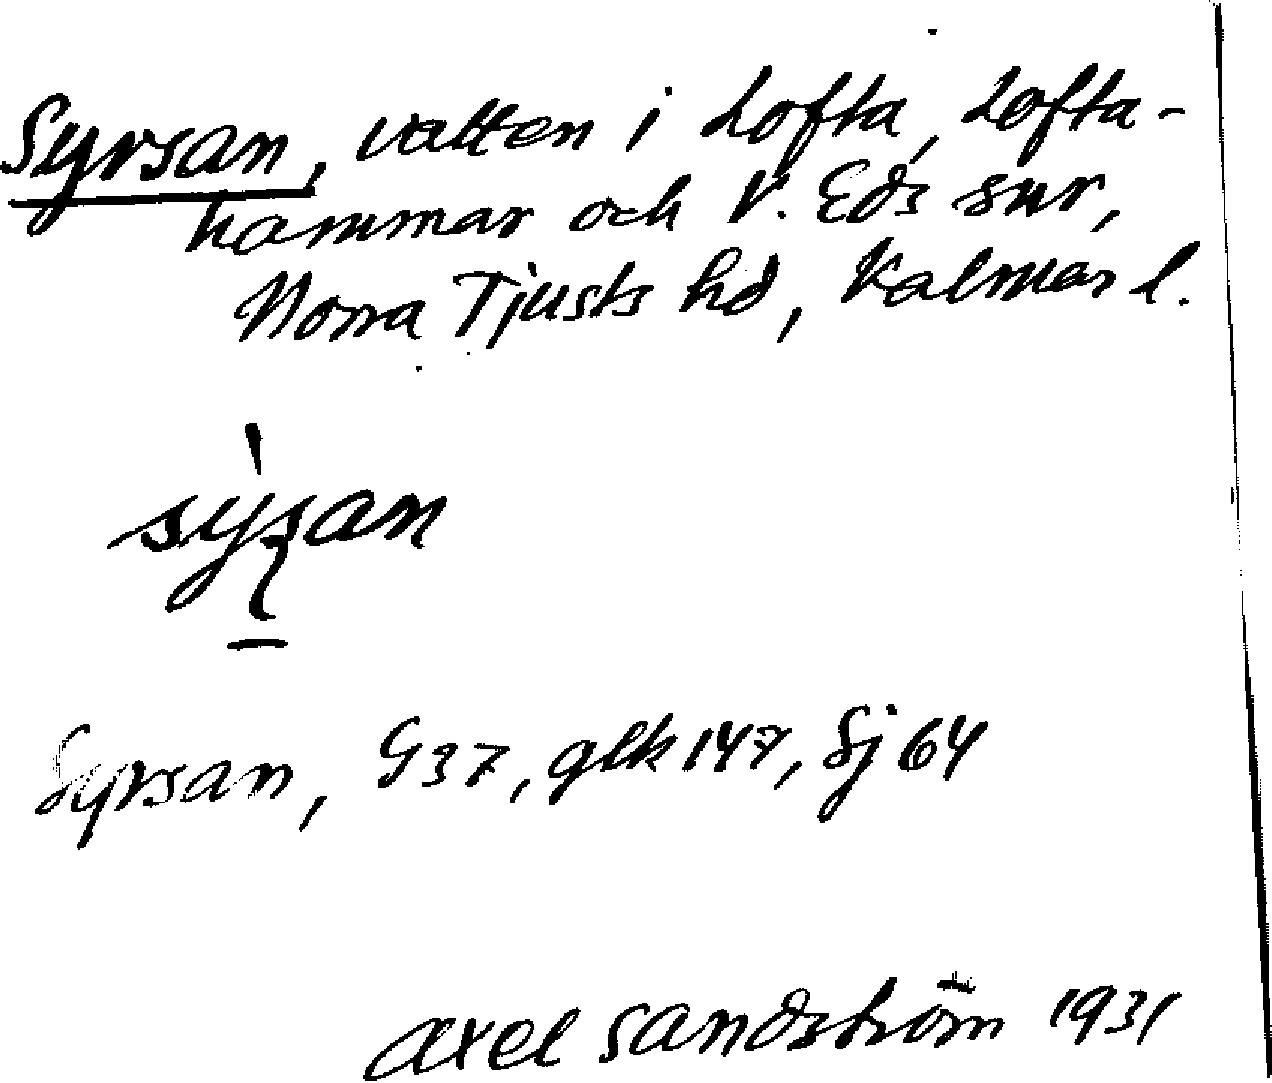 Syrsan, vatten i Lofta, Lofta-
hammar och V. Eds snr,
Norra Tjusts hd, Kalmar l.
Syrsan, G37, glk 147, Sj 64
Axel Sandström 1931